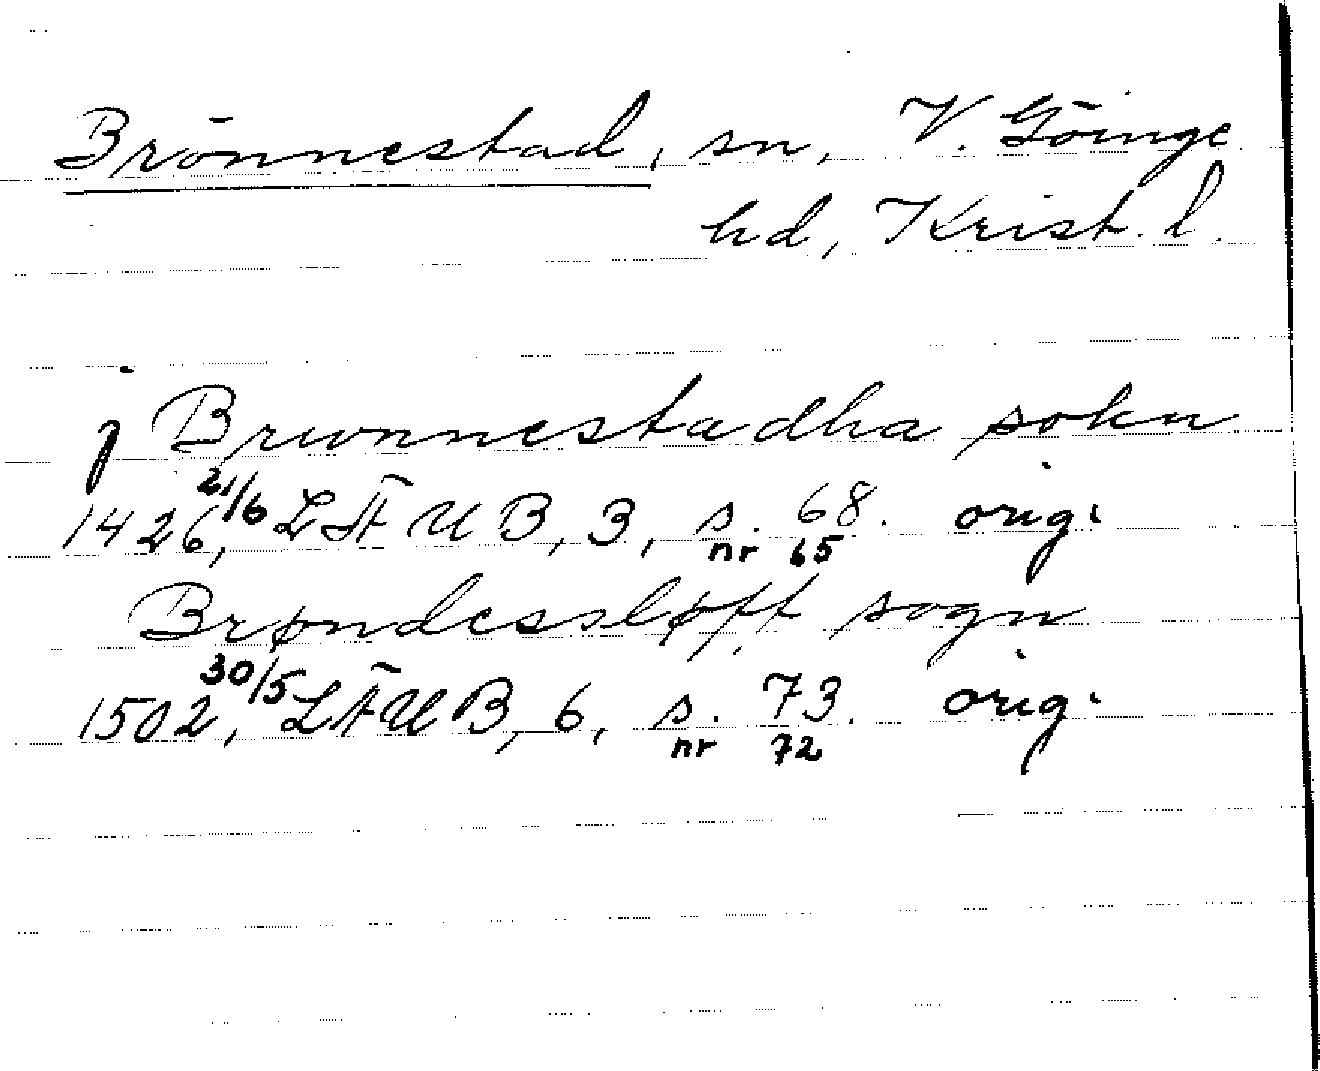 Brönnestad, sn, V. Göinge
hd, Krist. l.
j Brunnestadha sokn
1426, 21/6 LÄUB, 3, s. 68. orig.
nr 65
Brøndessløft sogn
1502, 30/5 LÄUB, 6, s. 73. orig.
nr 72